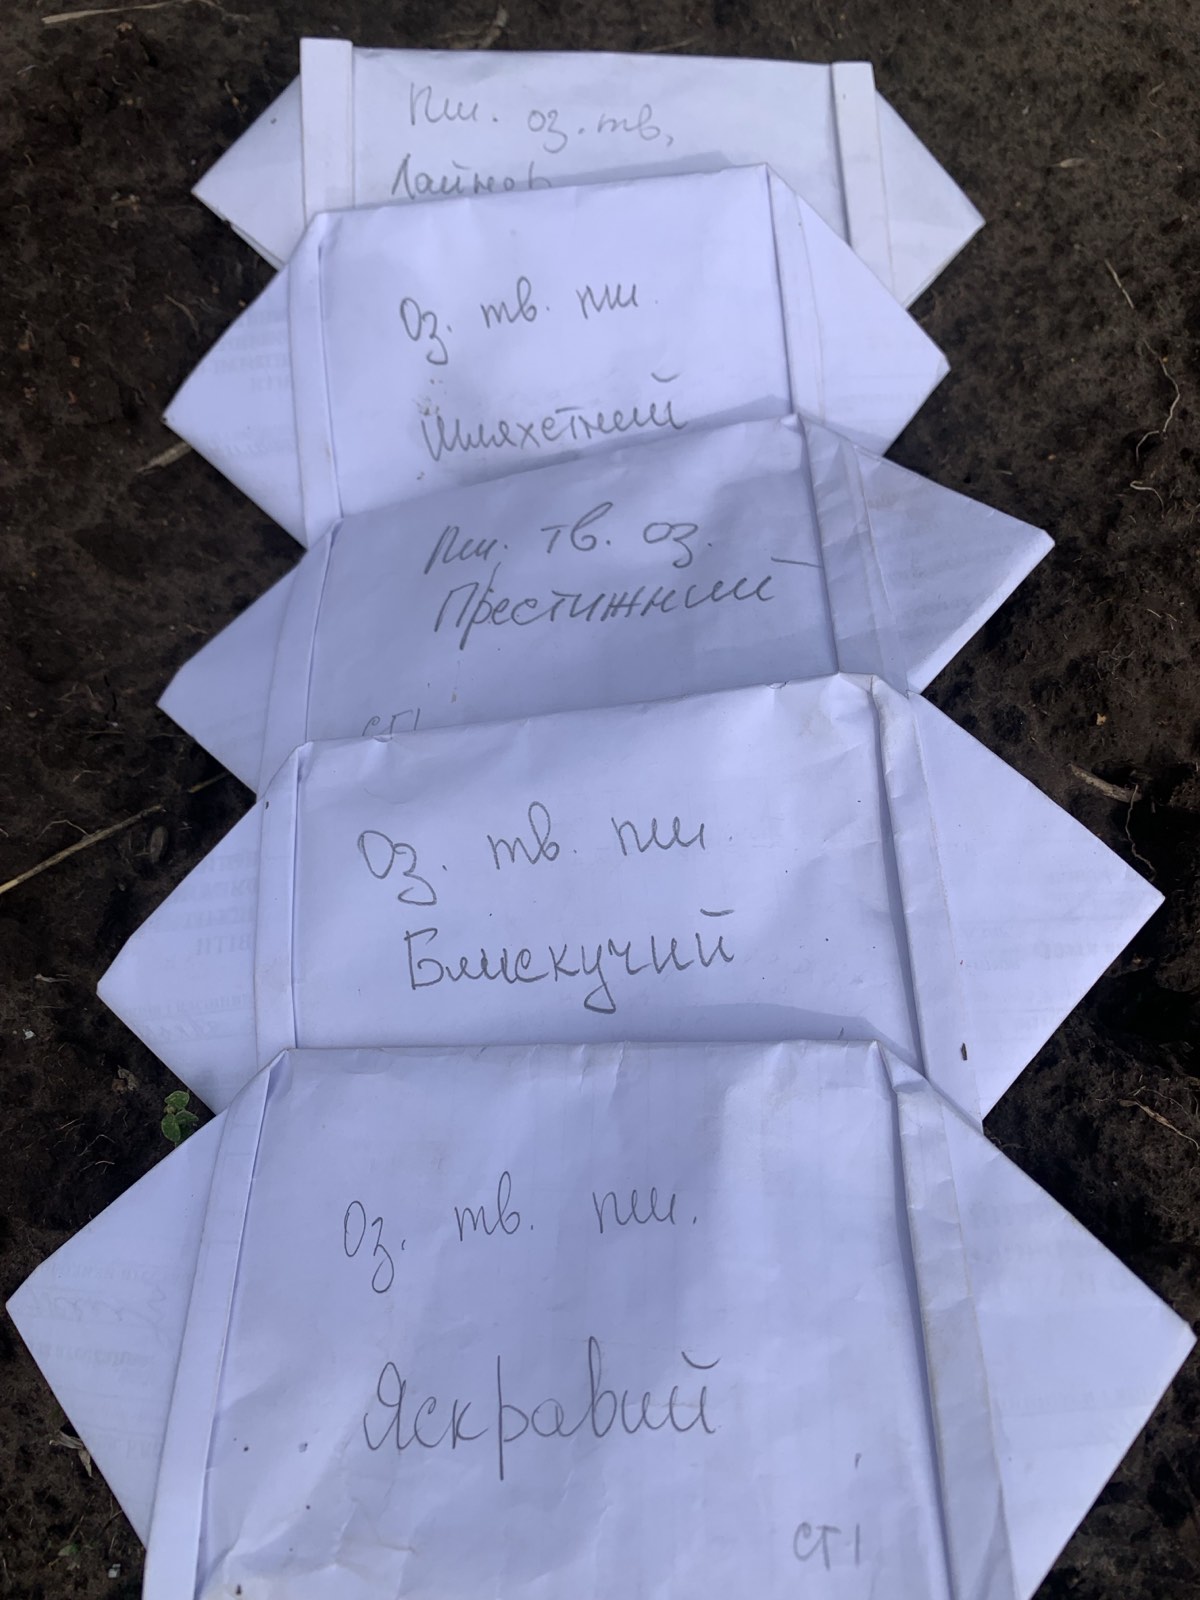 Пш. оз. тв.
Лайнер
Оз. тв. пш.
Шляхетний
Пш. тв. оз.
Престижний
СТ1
Оз. тв. пш.
Блискучий
Оз. тв. пш.
Яскравий
СТ1